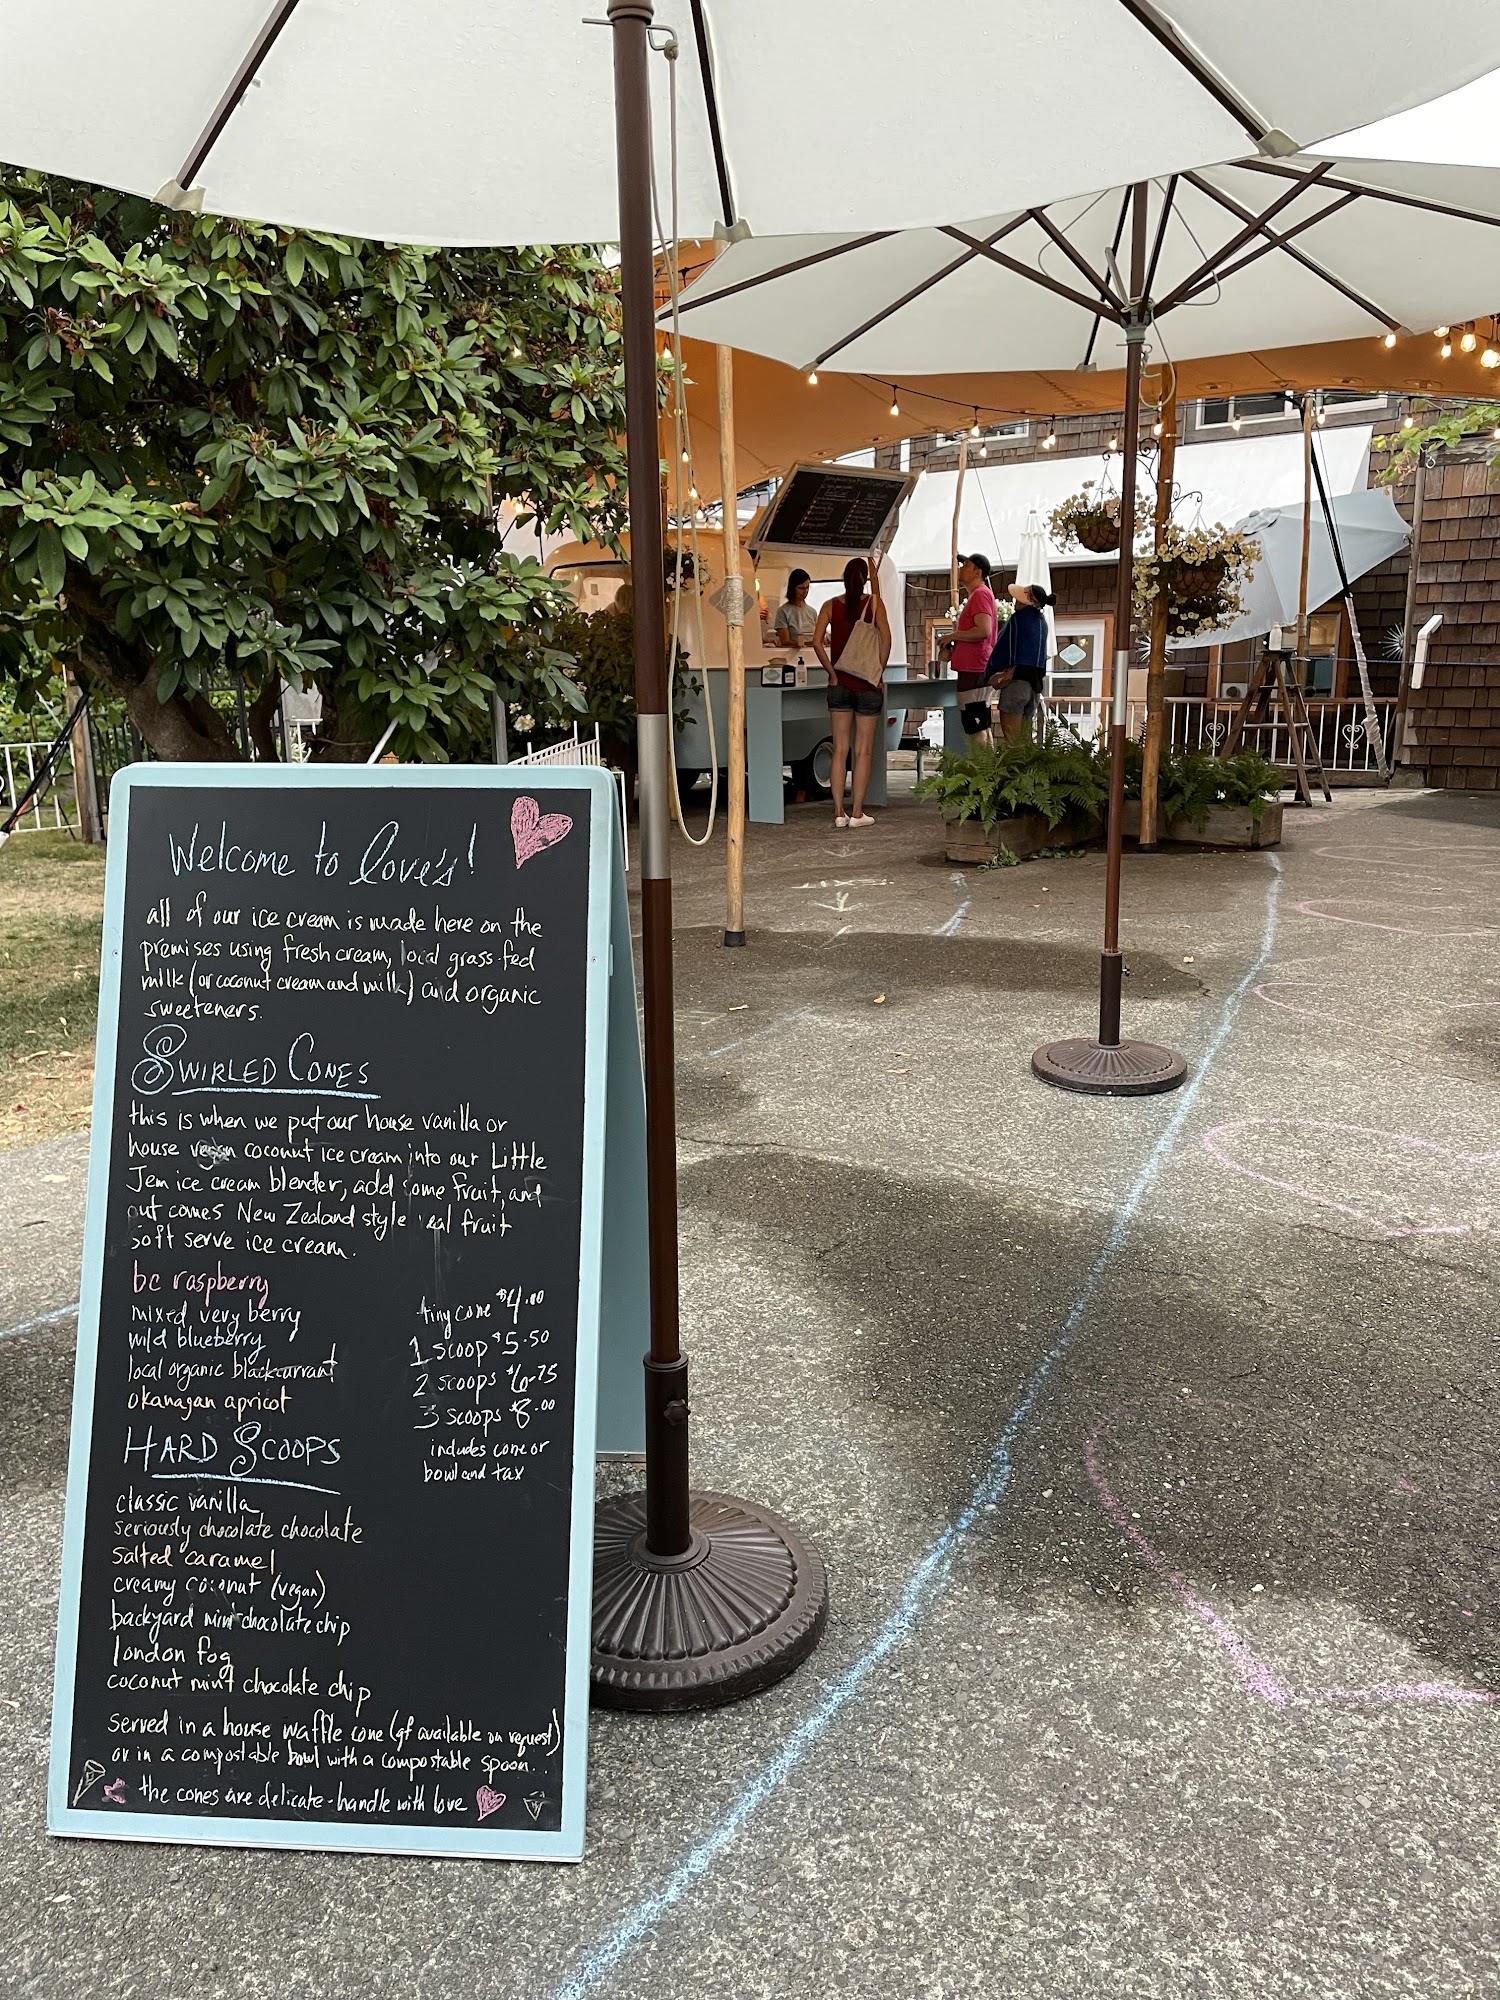 Welcome to love's!
all of our ice cream is made here on the
premises using fresh cream, local grass-fed
milk (or coconut cream and milk) and organic
sweeteners.
SWIRLED CONES
this is when we put our house vanilla or
house vegan coconut ice cream into our Little
Jem ice cream blender, add some fruit, and
out comes New Zealand style real fruit
soft serve ice cream.
bc raspberry
mixed very berry
wild blueberry
local organic blackcurrant
okanagan apricot
tiny cone $4.00
1 scoop $5.50
2 scoops $6.75
3 scoops $8.00
includes cone or
bowl and tax
HARD SCOOPS
classic vanilla
seriously chocolate chocolate
salted caramel
creamy coconut (vegan)
backyard mint chocolate chip
london fog
coconut mint chocolate chip
served in a house waffle cone (gf available on request)
or in a compostable bowl with a compostable spoon..
the cones are delicate - handle with love